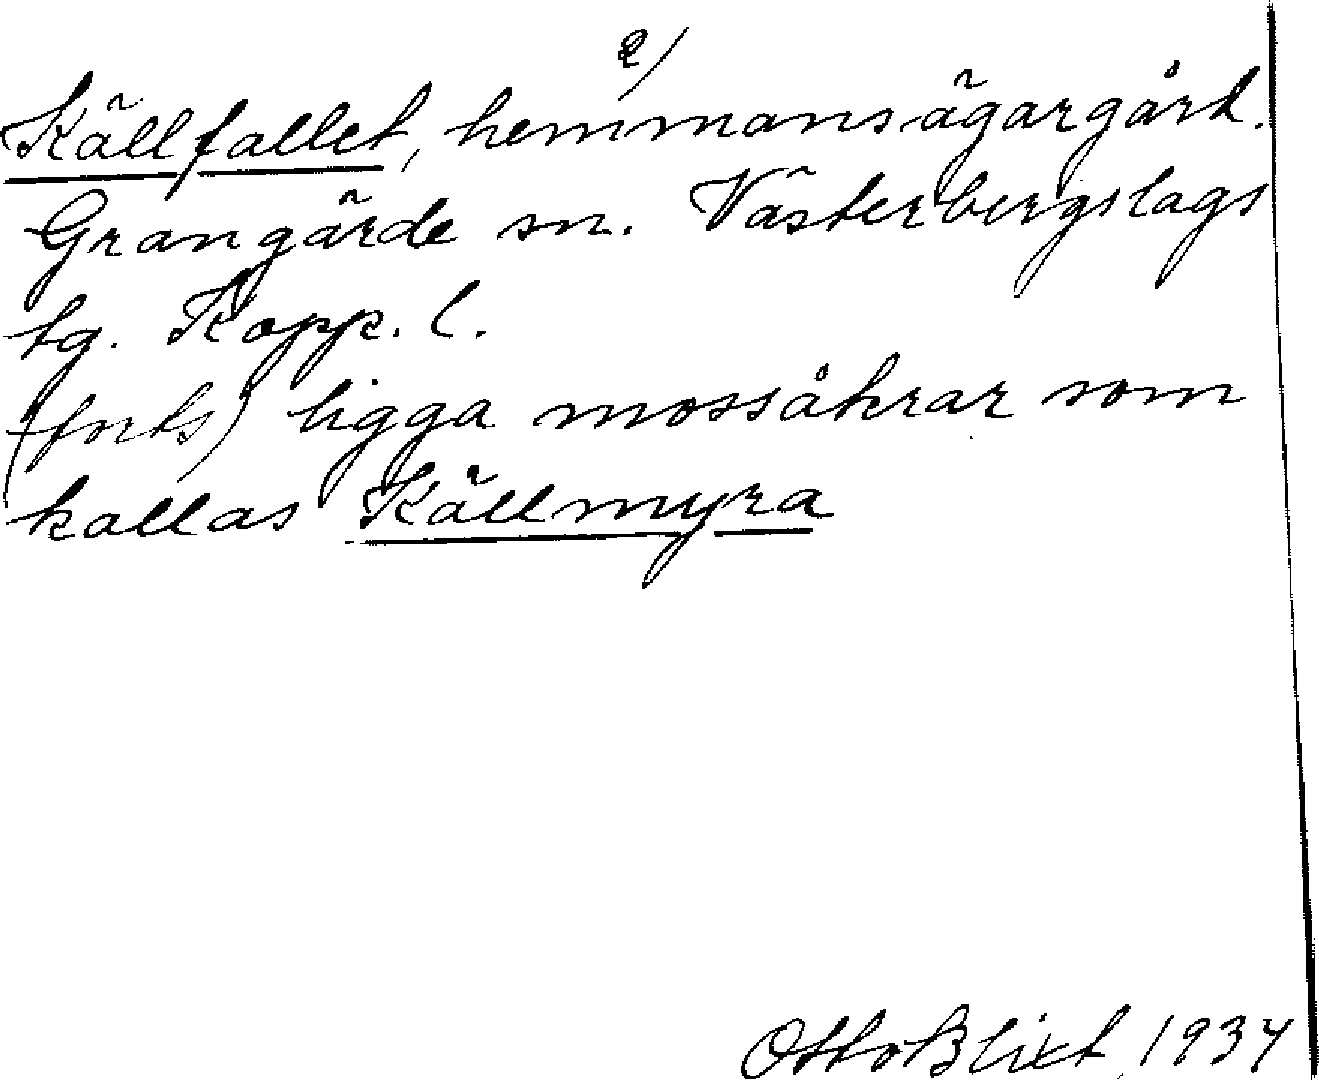 2/
Källfallet, hemmansägargård.
Grangärde sn. Västerbergslags
tg. Kopp. l.
(forts) ligga mossåkrar som
kallas Källmyra
Otto Blixt, 1934